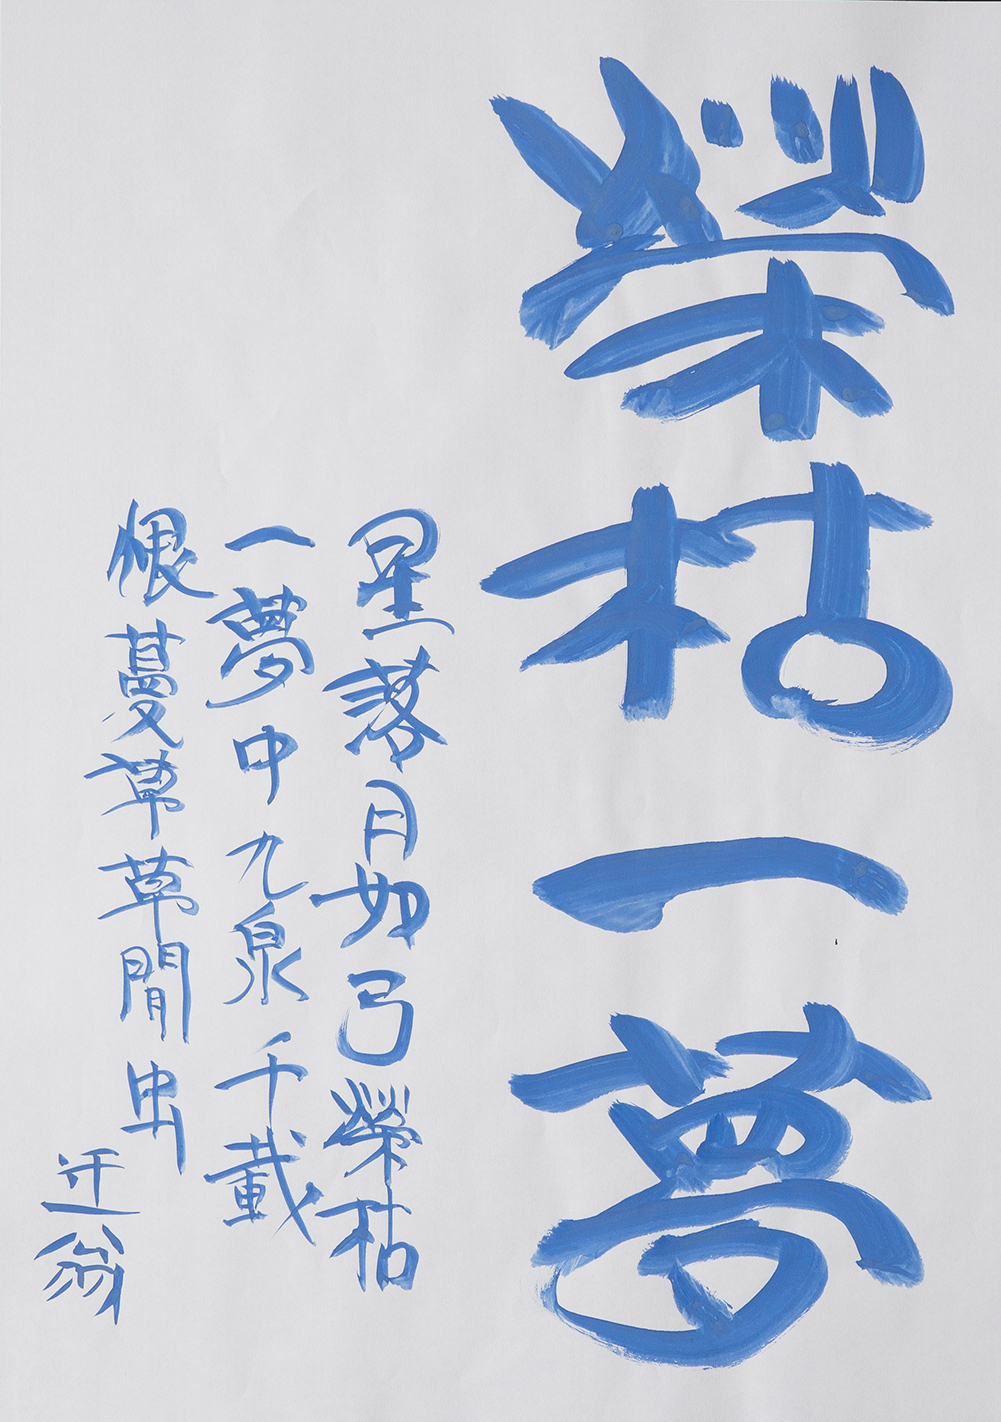 榮枯一夢
星落月如弓榮枯
一夢中九泉千載
恨蔓草草間虫
迂翁